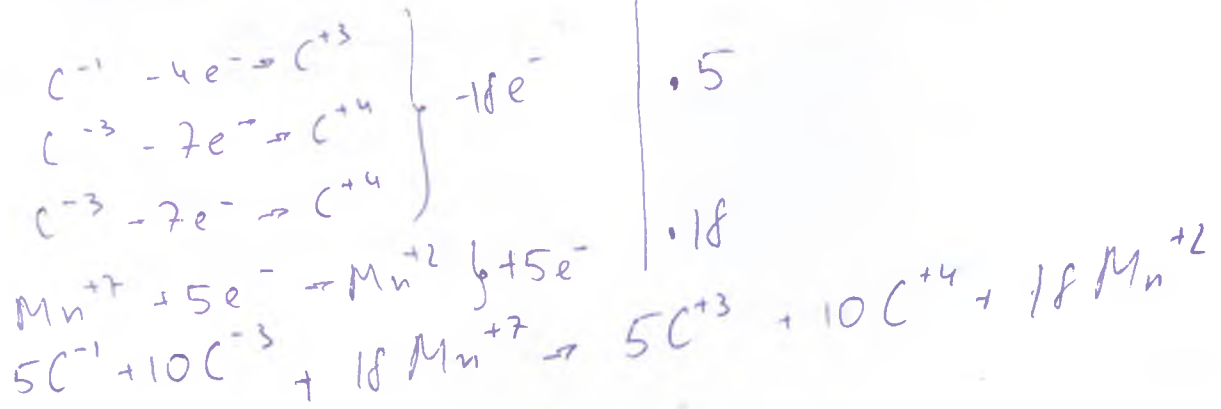 C⁻¹ - 4e⁻ → C⁺³ } -18e⁻ | · 5
C⁻³ - 7e⁻ → C⁺⁴
C⁻³ - 7e⁻ → C⁺⁴
Mn⁺⁷ + 5e⁻ → Mn⁺² } +5e⁻ | · 18
5C⁻¹ + 10C⁻³ + 18Mn⁺⁷ → 5C⁺³ + 10C⁺⁴ + 18Mn⁺²